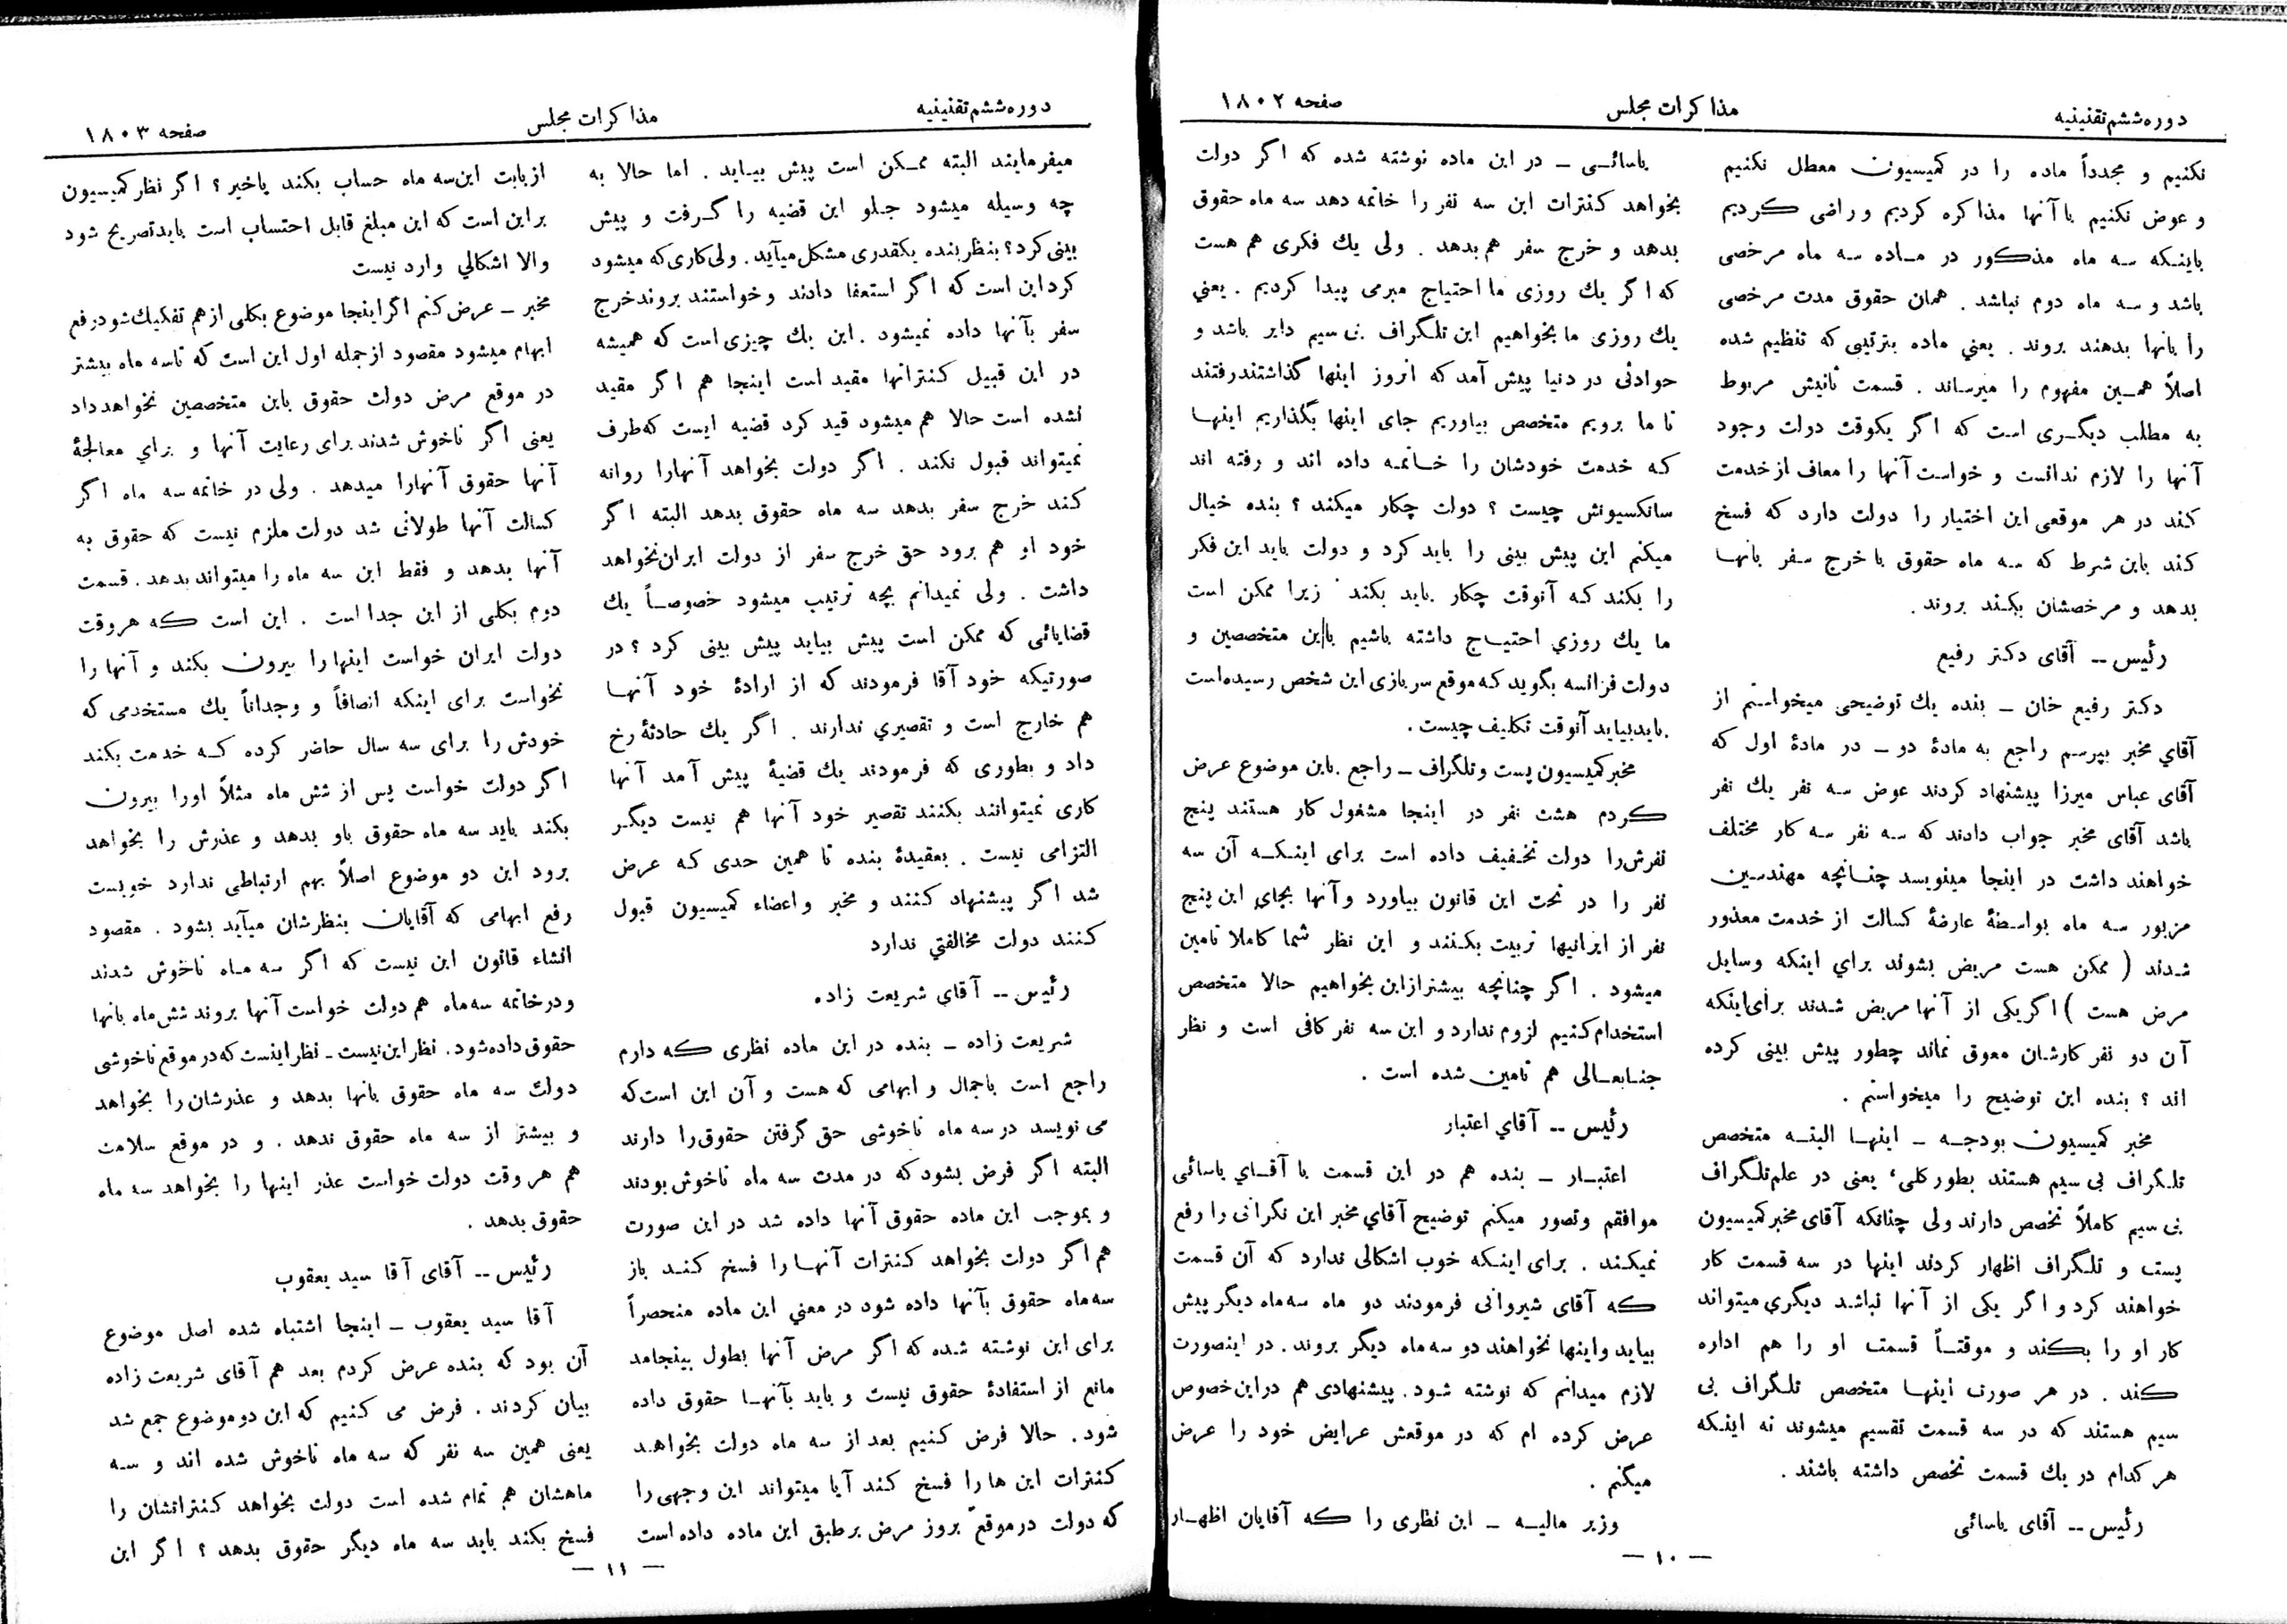 دوره ششم تقنینیه
مذاکرات مجلس
صفحه ۱۸۰۲
نکنیم و مجدداً ماده را در کمیسیون معطل نکنیم
و عوض نکنیم با آنها مذاکره کردیم و راضی کردیم
باینکه سه ماه مذکور در ماده سه ماه مرخصی
باشد و سه ماه دوم نباشد . همان حقوق مدت مرخصی
را بانها بدهند بروند . یعنی ماده بترتیبی که تنظیم شده
اصلاً همین مفهوم را میرساند . قسمت ثانیش مربوط
به مطلب دیگری است که اگر یکوقت دولت وجود
آنها را لازم ندانست و خواست آنها را معاف از خدمت
کند در هر موقعی این اختیار را دولت دارد که فسخ
کند باین شرط که سه ماه حقوق با خرج سفر بانها
بدهد و مرخصشان بکند بروند .
رئیس -- آقای دکتر رفیع
دکتر رفیع خان - بنده یك توضیحی میخواستم از
آقای مخبر بپرسم راجع به مادهٔ دو - در مادهٔ اول که
آقای عباس میرزا پیشنهاد کردند عوض سه نفر یك نفر
باشد آقای مخبر جواب دادند که سه نفر سه کار مختلف
خواهند داشت در اینجا مینویسد چنانچه مهندسین
مزبور سه ماه بواسطهٔ عارضهٔ کسالت از خدمت معذور
شدند ( ممکن هست مریض بشوند برای اینکه وسایل
مرض هست ) اگر یکی از آنها مریض شدند برای اینکه
آن دو نفر کارشان معوق نماند چطور پیش بینی کرده
اند ؟ بنده این توضیح را میخواستم .
مخبر کمیسیون بودجه - اینها البته متخصص
تلگراف بی سیم هستند بطور کلی، یعنی در علم تلگراف
بی سیم کاملاً تخصص دارند ولی چنانکه آقای مخبر کمیسیون
پست و تلگراف اظهار کردند اینها در سه قسمت کار
خواهند کرد و اگر یکی از آنها نباشد دیگری میتواند
کار او را بکند و موقتاً قسمت او را هم اداره
کند . در هر صورت اینها متخصص تلگراف بی
سیم هستند که در سه قسمت تقسیم میشوند نه اینکه
هر کدام در یك قسمت تخصص داشته باشند .
رئیس -- آقای یاسائی
یاسائی - در این ماده نوشته شده که اگر دولت
بخواهد کنترات این سه نفر را خاتمه دهد سه ماه حقوق
بدهد و خرج سفر هم بدهد . ولی یك فکری هم هست
که اگر یك روزی ما احتیاج مبرمی پیدا کردیم . یعنی
یك روزی ما بخواهیم این تلگراف بی سیم دایر باشد و
حوادثی در دنیا پیش آمد که آنروز اینها گذاشتند رفتند
تا ما برویم متخصص بیاوریم جای اینها بگذاریم اینها
که خدمت خودشان را خاتمه داده اند و رفته اند
سانکسیونش چیست ؟ دولت چکار میکند ؟ بنده خیال
میکنم این پیش بینی را باید کرد و دولت باید این فکر
را بکند که آنوقت چکار باید بکند زیرا ممکن است
ما یك روزی احتیاج داشته باشیم باین متخصصین و
دولت فرانسه بگوید که موقع سربازی این شخص رسیده است
باید بیاید آنوقت تکلیف چیست .
مخبر کمیسیون پست و تلگراف - راجع باین موضوع عرض
کردم هشت نفر در اینجا مشغول کار هستند پنج
نفرش را دولت تخفیف داده است برای اینکه آن سه
نفر را در تحت این قانون بیاورد و آنها بجای این پنج
نفر از ایرانیها تربیت بکنند و این نظر شما کاملا تامین
میشود . اگر چنانچه بیشتر از این بخواهیم حالا متخصص
استخدام کنیم لزوم ندارد و این سه نفر کافی است و نظر
جنابعالی هم تامین شده است .
رئیس -- آقای اعتبار
اعتبار - بنده هم در این قسمت با آقای یاسائی
موافقم و تصور میکنم توضیح آقای مخبر این نگرانی را رفع
نمیکند . برای اینکه خوب اشکالی ندارد که آن قسمت
که آقای شیروانی فرمودند دو ماه سه ماه دیگر پیش
بیاید و اینها نخواهند دو سه ماه دیگر بروند . در اینصورت
لازم میدانم که نوشته شود . پیشنهادی هم در این خصوص
عرض کرده ام که در موقعش عرایض خود را عرض
میکنم .
وزیر مالیه - این نظری را که آقایان اظهار
- ۱۰ -
دوره ششم تقنینیه
مذاکرات مجلس
صفحه ۱۸۰۳
میفرمایند البته ممکن است پیش بیاید . اما حالا به
چه وسیله میشود جلو این قضیه را گرفت و پیش
بینی کرد ؟ بنظر بنده یکقدری مشکل میآید . ولی کاری که میشود
کرد این است که اگر استعفا دادند و خواستند بروند خرج
سفر بآنها داده نمیشود . این یك چیزی است که همیشه
در این قبیل کنتراتها مقید است اینجا هم اگر مقید
نشده است حالا هم میشود قید کرد قضیه ایست که طرف
نمیتواند قبول نکند . اگر دولت بخواهد آنهارا روانه
کند خرج سفر بدهد سه ماه حقوق بدهد البته اگر
خود او هم برود حق خرج سفر از دولت ایران نخواهد
داشت . ولی نمیدانم بچه ترتیب میشود خصوصاً یك
قضایائی که ممکن است پیش بیاید پیش بینی کرد ؟ در
صورتیکه خود آقا فرمودند که از ارادهٔ خود آنها
هم خارج است و تقصیری ندارند . اگر یك حادثهٔ رخ
داد و بطوری که فرمودند یك قضیهٔ پیش آمد آنها
کاری نمیتوانند بکنند تقصیر خود آنها هم نیست دیگر
التزامی نیست . بعقیدهٔ بنده تا همین حدی که عرض
شد اگر پیشنهاد کنند و مخبر و اعضاء کمیسیون قبول
کنند دولت مخالفتي ندارد
رئیس -- آقای شریعت زاده
شریعت زاده - بنده در این ماده نظری که دارم
راجع است باجمال و ابهامی که هست و آن این است که
می نویسد در سه ماه ناخوشی حق گرفتن حقوق را دارند
البته اگر فرض بشود که در مدت سه ماه ناخوش بودند
و بموجب این ماده حقوق آنها داده شد در این صورت
هم اگر دولت بخواهد کنترات آنها را فسخ کند باز
سه ماه حقوق بآنها داده شود در معنی این ماده منحصراً
برای این نوشته شده که اگر مرض آنها بطول بینجامد
مانع از استفادهٔ حقوق نیست و باید بآنها حقوق داده
شود . حالا فرض کنیم بعد از سه ماه دولت بخواهد
کنترات این ها را فسخ کند آیا میتواند این وجهی را
که دولت در موقع بروز مرض بر طبق این ماده داده است
از بابت این سه ماه حساب بکند یا خیر ؟ اگر نظر کمیسیون
بر این است که این مبلغ قابل احتساب است باید تصریح شود
والا اشکالي وارد نیست
مخبر - عرض کنم اگر اینجا موضوع بکلی از هم تفکیك شود رفع
ابهام میشود مقصود از جمله اول این است که تا سه ماه بیشتر
در موقع مرض دولت حقوق باین متخصصین نخواهد داد
یعنی اگر ناخوش شدند برای رعایت آنها و برای معالجهٔ
آنها حقوق آنهارا میدهد . ولی در خاتمه سه ماه اگر
کسالت آنها طولانی شد دولت ملزم نیست که حقوق به
آنها بدهد و فقط این سه ماه را میتواند بدهد . قسمت
دوم بکلی از این جدا است . این است که هر وقت
دولت ایران خواست اینها را بیرون بکند و آنها را
نخواست برای اینکه انصافاً و وجداناً یك مستخدمی که
خودش را برای سه سال حاضر کرده که خدمت بکند
اگر دولت خواست پس از شش ماه مثلاً اورا بیرون
بکند باید سه ماه حقوق باو بدهد و عذرش را بخواهد
برود این دو موضوع اصلاً بهم ارتباطی ندارد خوبست
رفع ابهامی که آقایان بنظرشان میآید بشود . مقصود
انشاء قانون این نیست که اگر سه ماه ناخوش شدند
و در خاتمه سه ماه هم دولت خواست آنها بروند شش ماه بانها
حقوق داده شود . نظر این نیست - نظر اینست که در موقع ناخوشی
دولت سه ماه حقوق بانها بدهد و عذرشان را بخواهد
و بیشتر از سه ماه حقوق ندهد . و در موقع سلامت
هم هر وقت دولت خواست عذر اینها را بخواهد سه ماه
حقوق بدهد .
رئیس -- آقای آقا سید یعقوب
آقا سید یعقوب - اینجا اشتباه شده اصل موضوع
آن بود که بنده عرض کردم بعد هم آقای شریعت زاده
بیان کردند . فرض می کنیم که این دو موضوع جمع شد
یعنی همین سه نفر که سه ماه ناخوش شده اند و سه
ماهشان هم تمام شده است دولت بخواهد کنتراتشان را
فسخ بکند باید سه ماه دیگر حقوق بدهد ؟ اگر این
- ۱۱ -